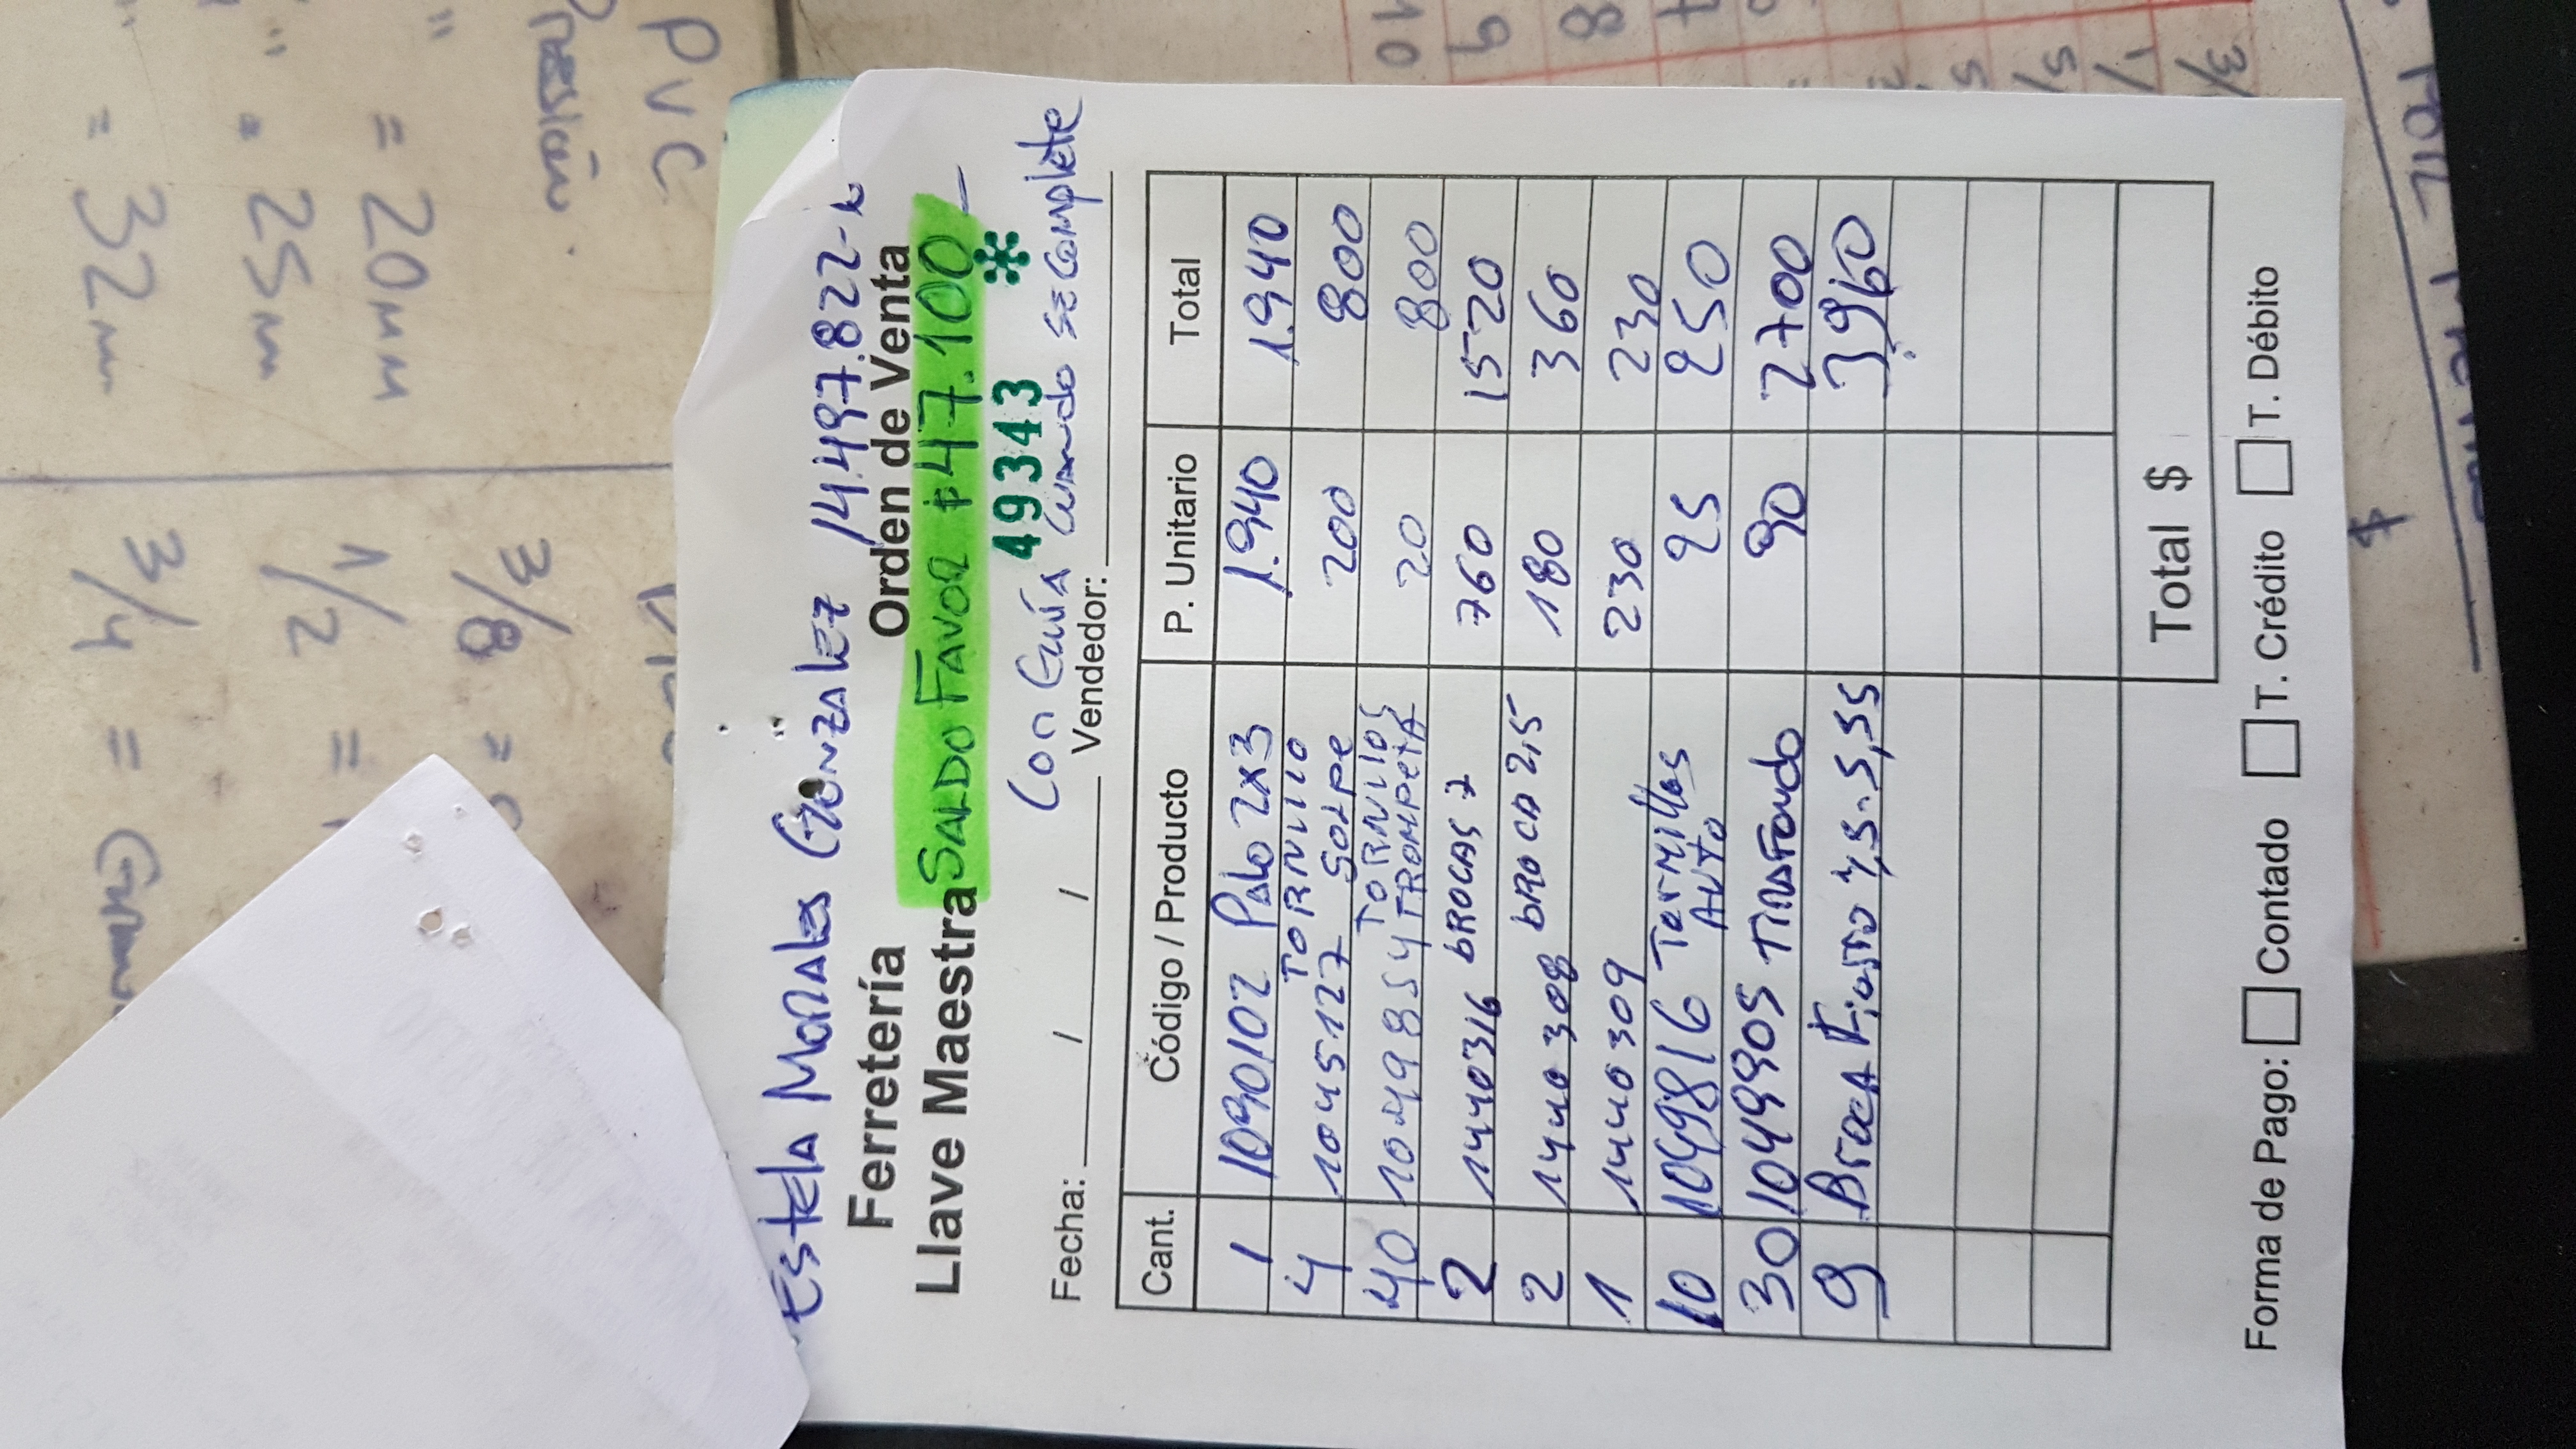 Estela Morales Gonzalez 14.497.822-k
Ferretería
Llave Maestra
Orden de Venta
SALDO FAVOR $47.100
49343 *
Con Guía cuando se complete
Fecha: / / Vendedor:
Cant. Código / Producto P. Unitario Total
1 1090102 Palo 2x3 1.940 1.940
4 1045127 TORNILLO GOLPE 200 800
40 1049854 TORNILLOS TROMPETA 20 800
2 1440316 BROCAS 7 760 1520
2 1440308 BROCA 2,5 180 360
1 1440309 230 230
10 1049816 Tornillos AUTO 25 250
30 1049905 TIRAFONDO 90 2700
9 Broca Fierro 4,5-5,55 3960
Total $
Forma de Pago: Contado T. Crédito T. Débito
PVC
Presión
" = 20mm
" = 25m
" = 32m
3/4 =
1/2 =
3/8 =
10
9
8
7